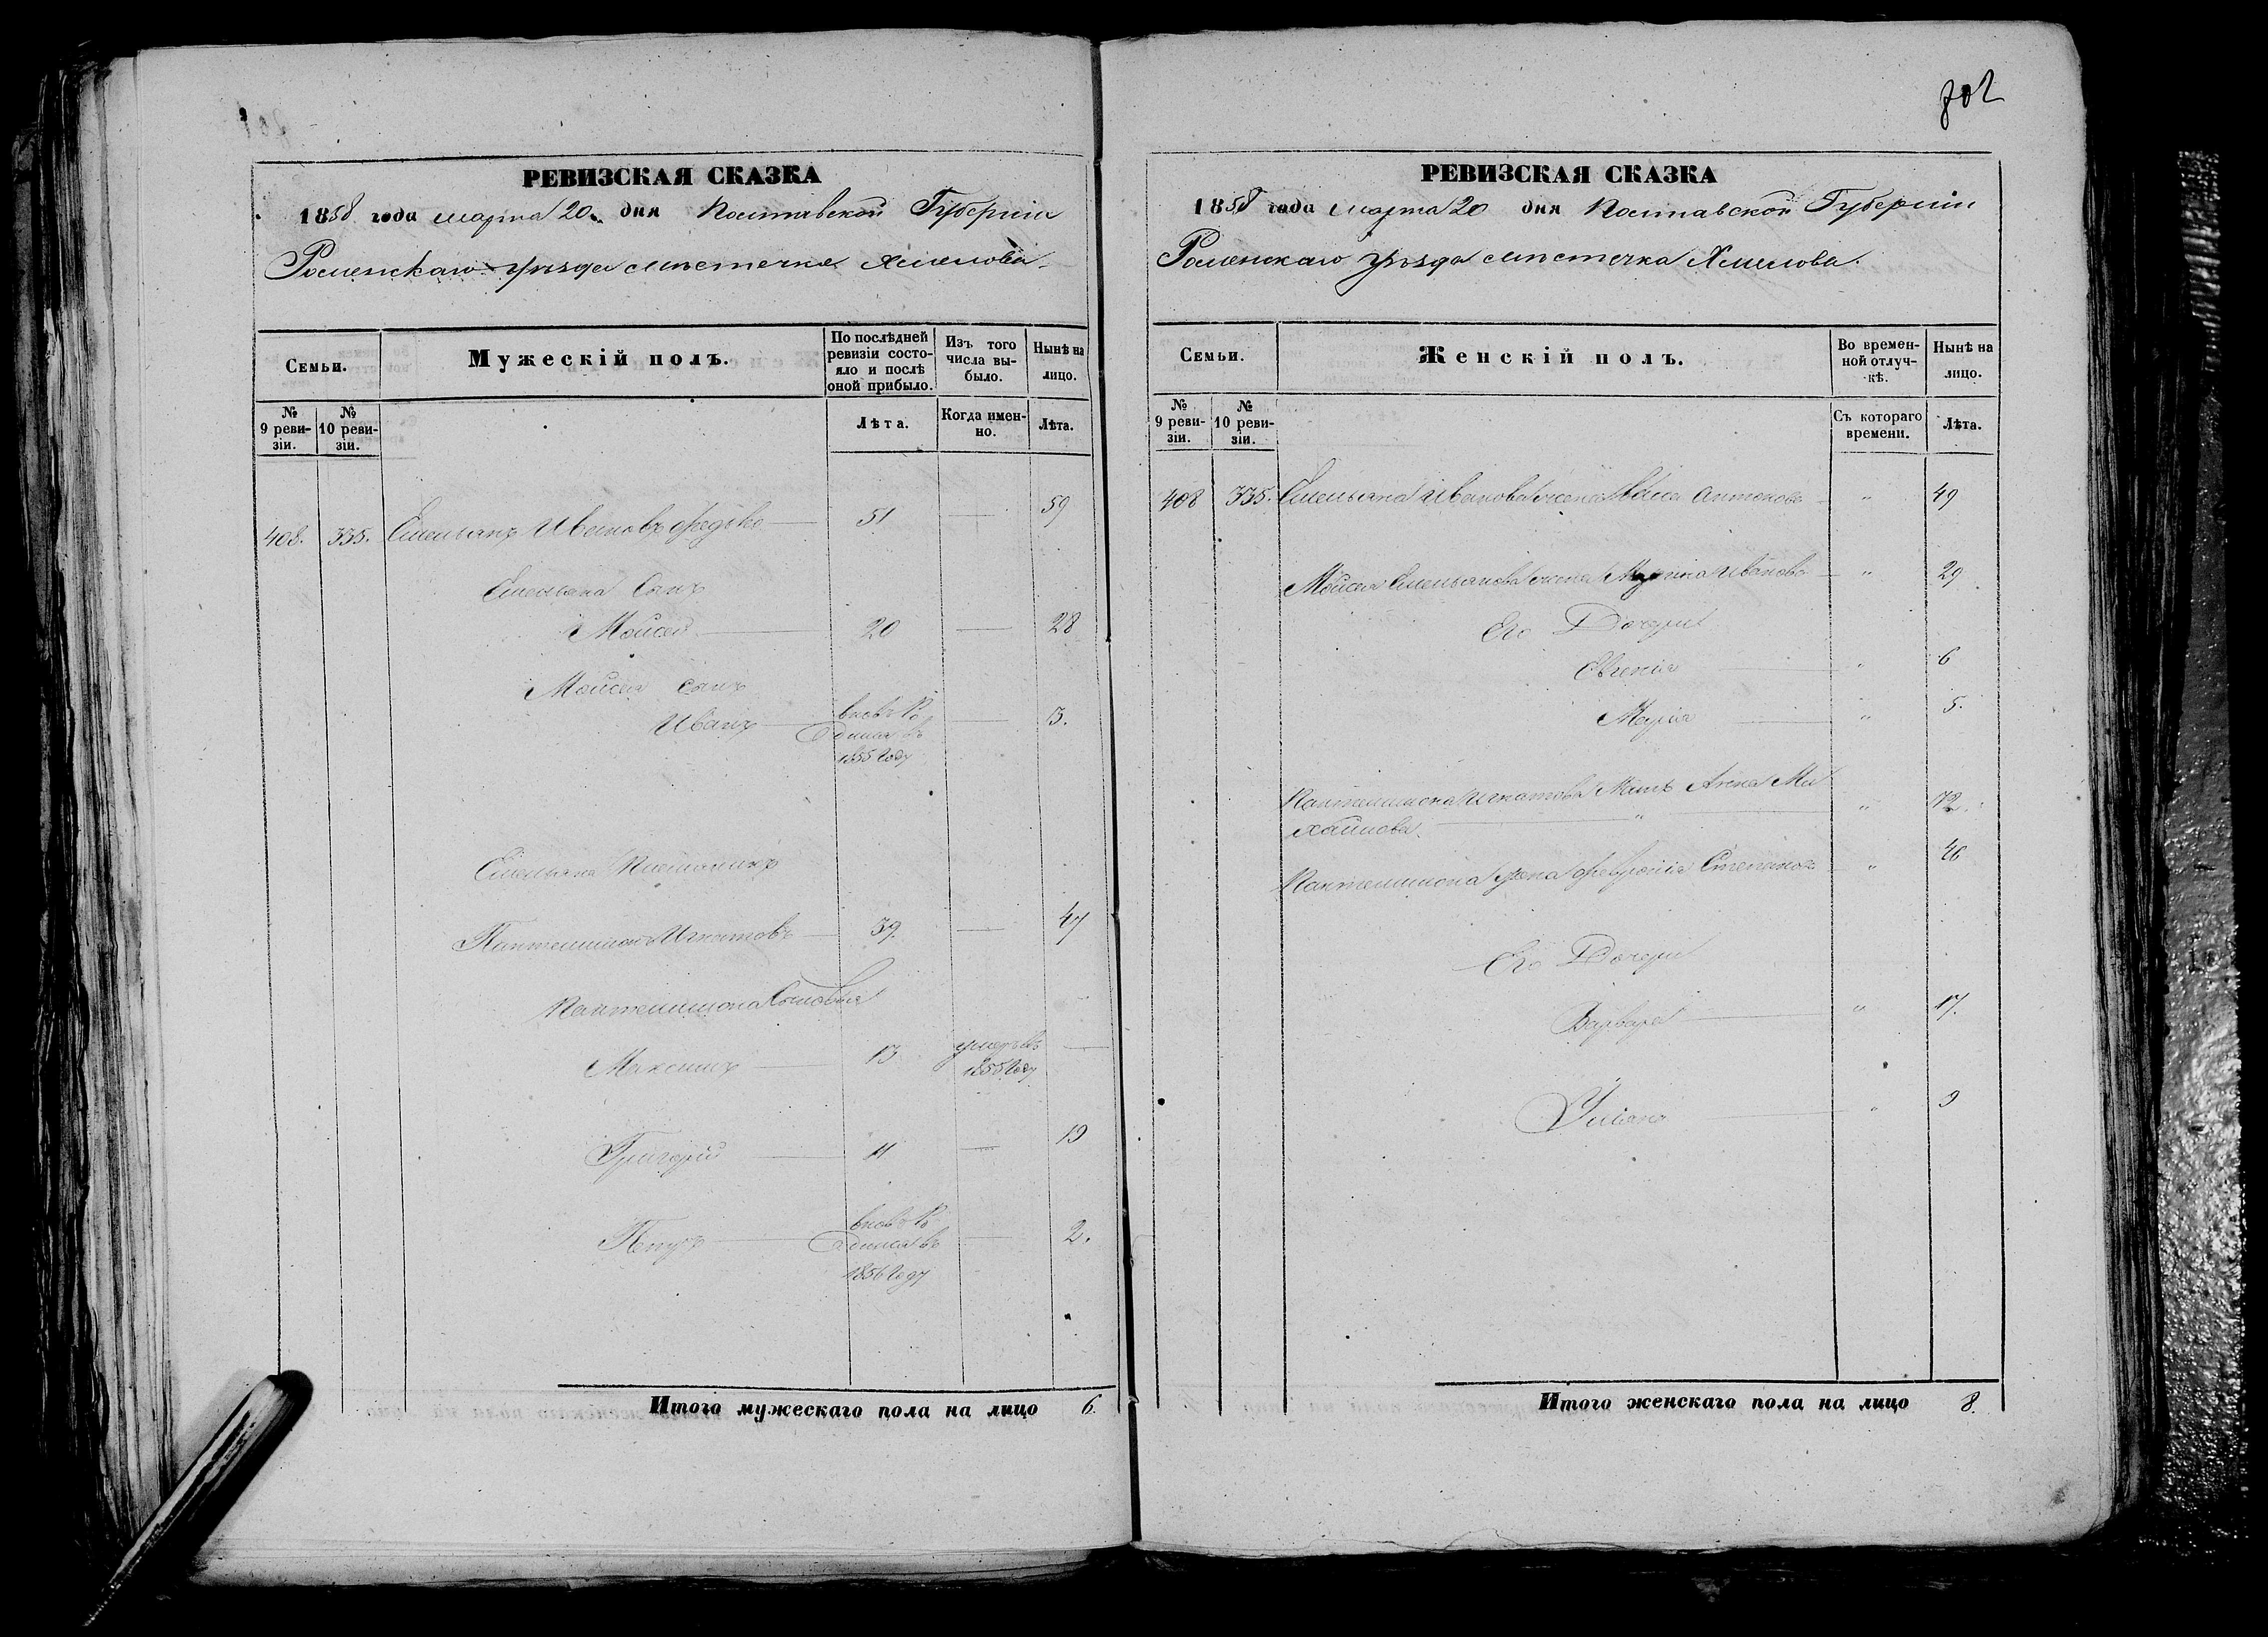 РЕВИЗСКАЯ СКАЗКА
1858 года марта 20 дня Полтавской Губерніи
Роменскаго уѣзда мѣстечка Хмелова
Семьи.
Мужескій полъ.
По послѣдней ревизіи состояло и послѣ оной прибыло.
Изъ того числа выбыло.
Нынѣ на лицо.
№ 9 ревизіи.
№ 10 ревизіи.
Лѣта.
Когда именно.
Лѣта.
408. 335. Емельянъ Ивановъ Федько 51 — 59
Емельяна Сынъ
Мойсей 20 — 28
Мойсея сынъ
Иванъ — 3.
1855 году
Емельяна Племяникъ
Пантелимонъ Игнатовъ 39. — 47
Пантелимона Сыновья
Максимъ 13 умеръ въ —
1855 году
Григорій 11 — 19
Петръ — 2.
1856 году
Итого мужескаго пола на лицо 6.
802
РЕВИЗСКАЯ СКАЗКА
1858 года марта 20 дня Полтавской Губерніи
Роменскаго уѣзда мѣстечка Хмелова.
Семьи.
Женскій полъ.
Во временной отлучкѣ.
Нынѣ на лицо.
№ 9 ревизіи.
№ 10 ревизіи.
Съ котораго времени.
Лѣта.
408 335. Емельяна Иванова жена Антонова " 49
Мойсея Емельянова жена Иванова " 29
Его Дочери
Евгенія " 6
Марія " 5.
Пантелимона Игнатова Мать Анна Ми
хайлова. " " 72.
Пантелимона жена Февронія Степанова " 46
Его Дочери
Варвара " 17.
Уліяна " 9
Итого женскаго пола на лицо 8.